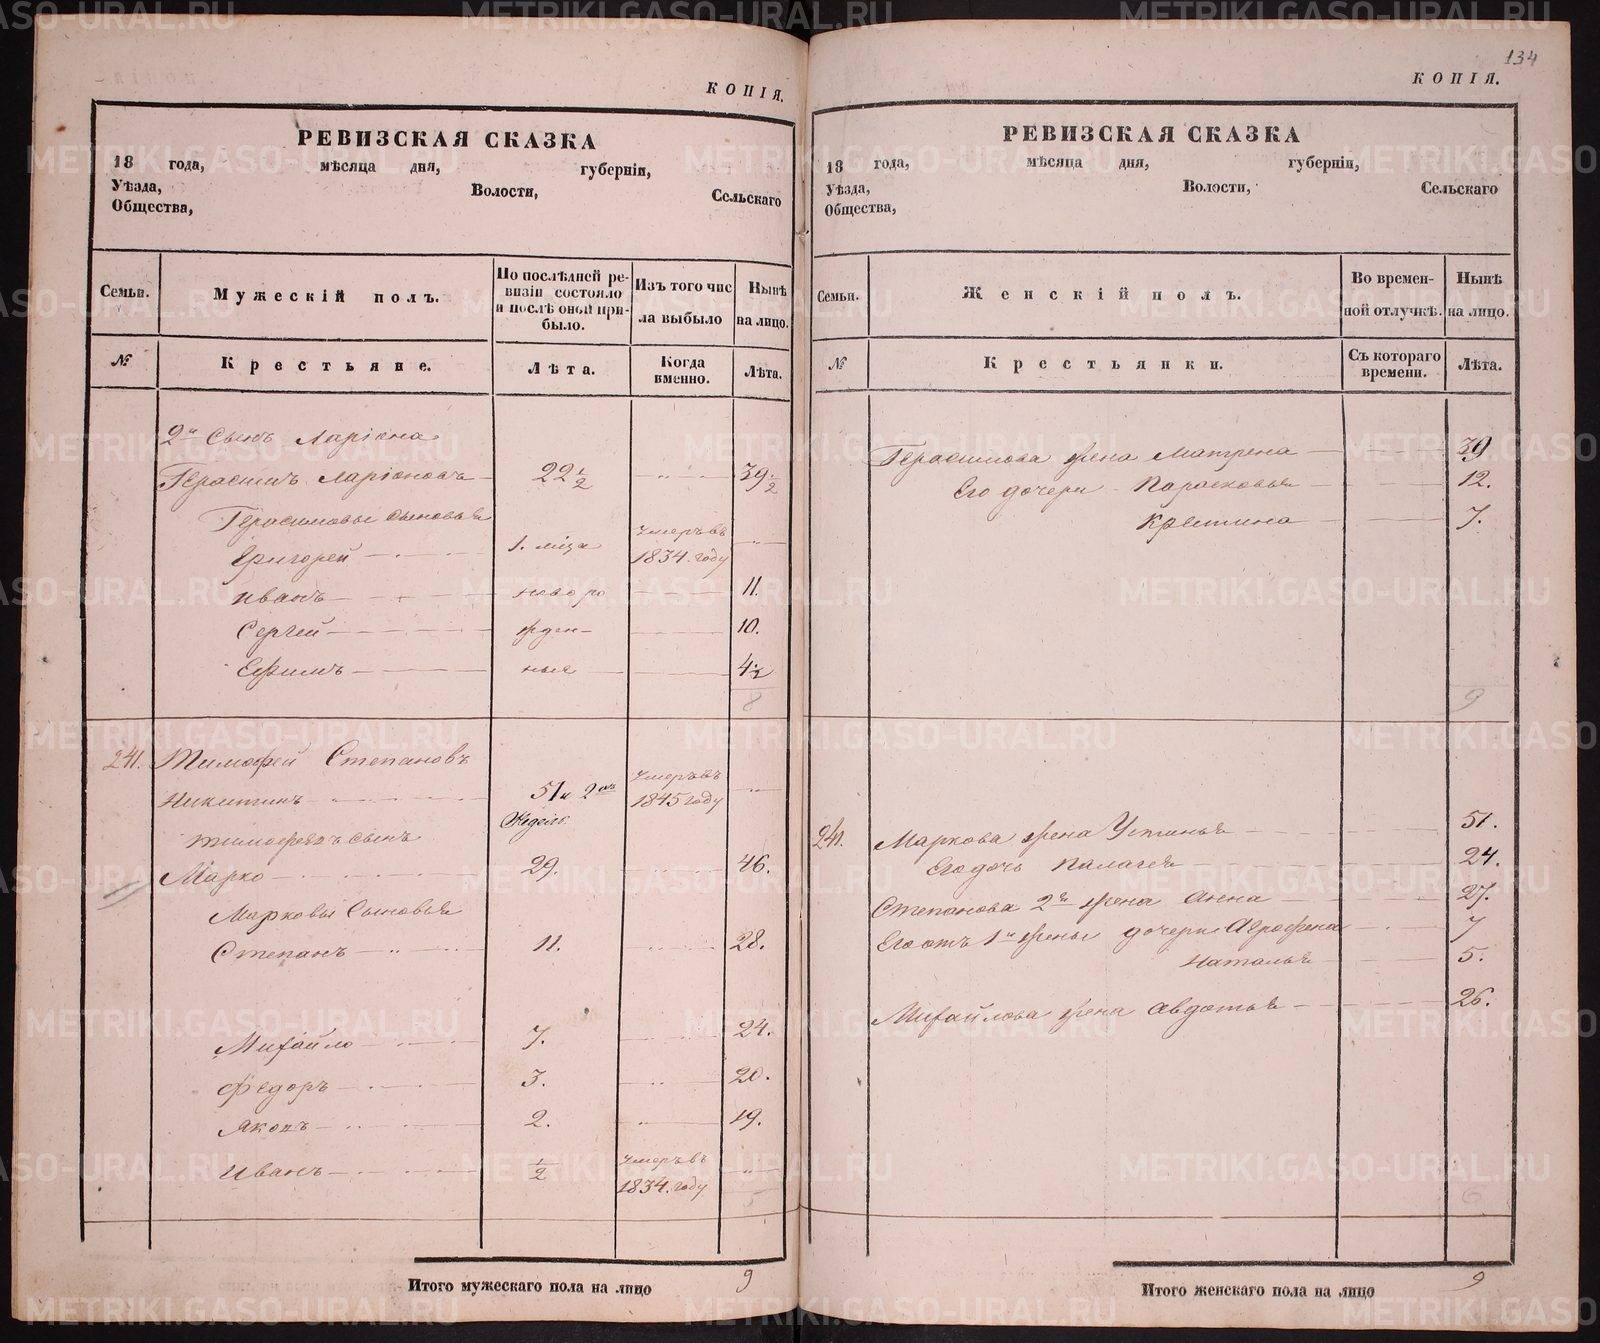 КОПІЯ.
РЕВИЗСКАЯ СКАЗКА
18 года, мѣсяца дня, губерніи,
Уѣзда, Волости, Сельскаго
Общества,
Семьи. Мужескій полъ. По послѣдней ре-
визіи состояло
и послѣ оной при-
было. Изъ того чис
ла выбыло Нынѣ
на лицо.
№ Крестьяне. Лѣта. Когда
именно. Лѣта.
2й Сынъ Ларіона
Герасимъ Ларіоновъ 22 1/2 39 1/2
Герасимовы сыновья
Григорей 1. мѣца умеръ въ
1834. году
Иванъ новоро 11.
Сергей жден- 10.
Ефимъ ные 4 1/2
8
241. Тимофей Степановъ
Никитинъ 51 и 2хъ
недѣль умеръ въ
1845 году
Тимофеевъ сынъ
Марко 29. 46.
Марковы Сыновья
Степанъ 11. 28.
Михайло 7. 24.
Федоръ 3. 20.
Яковъ 2. 19.
Иванъ 1/2 умеръ въ
1834. году
5
Итого мужескаго пола на лицо 9
134
КОПІЯ.
РЕВИЗСКАЯ СКАЗКА
18 года, мѣсяца дня, губерніи,
Уѣзда, Волости, Сельскаго
Общества,
Семьи. Женскій полъ. Во времен-
ной отлучкѣ. Нынѣ
на лицо.
№ Крестьянки. Съ котораго
времени. Лѣта.
Герасимова жена Матрена 39
Его дочери Парасковья 12.
Крестина 7.
9
241. Маркова жена Устинья 51.
Его дочь Палагея 24.
Степанова 2я жена Анна 27.
Его отъ 1й жены дочери Агрофена 7
Наталья 5.
Михайлова жена Авдотья 26.
6
Итого женскаго пола на лицо 9
METRIKI.GASO-URAL.RU